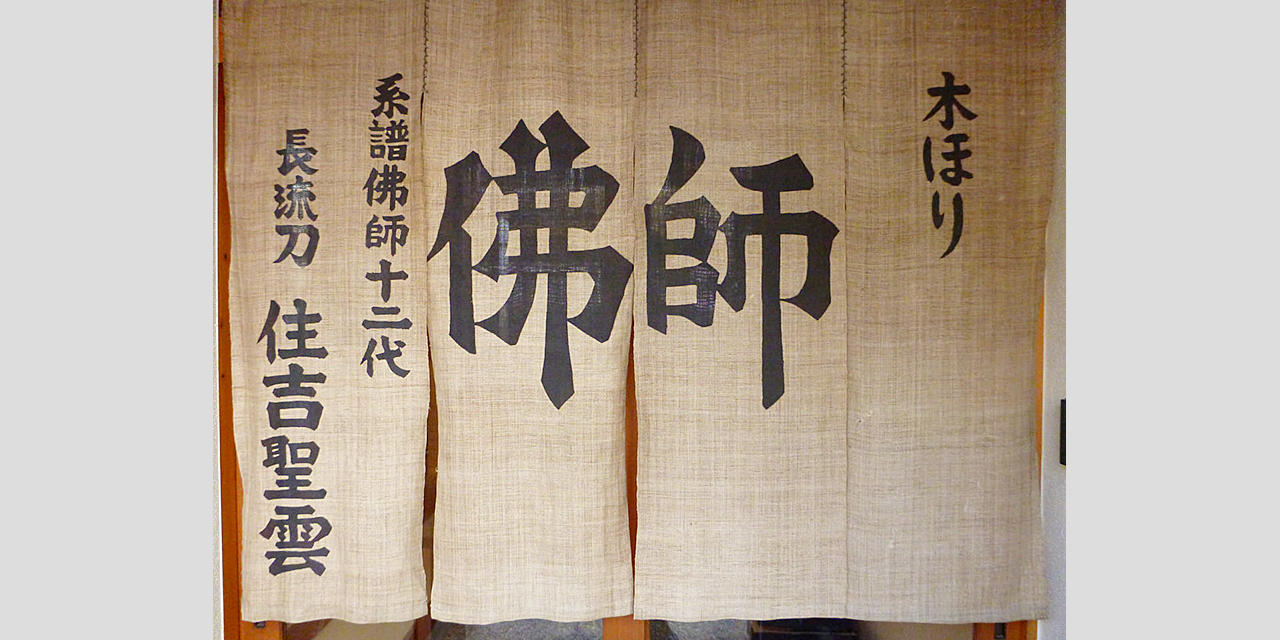 木ほり
佛師
系譜佛師十二代
長流刀 住吉聖雲